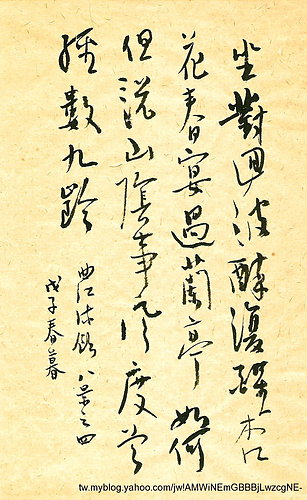 坐對迴波醉復醒杏
花春宴過蘭亭如何
但說山陰事風度曾
經數九齡
曲江流飲八景之四
戊子春暮
tw.myblog.yahoo.com/jw!AMWiNEmGBBBjLwzcgNE-